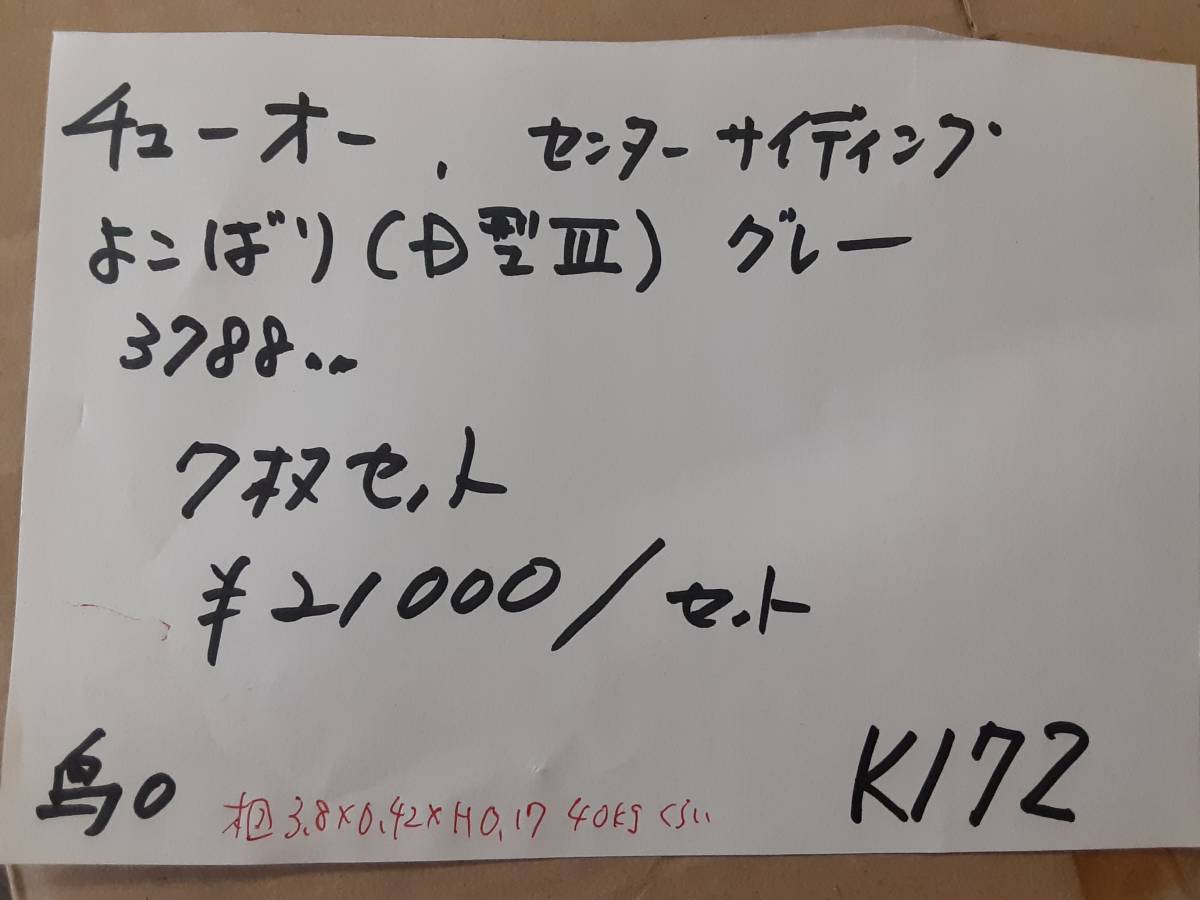 チューオー. センターサイディング
よこばり(D型Ⅲ) グレー
3788..
7枚セット
¥21000/セット
鳥0
K172
梱3.8×0.42×H0.17 40kgくらい